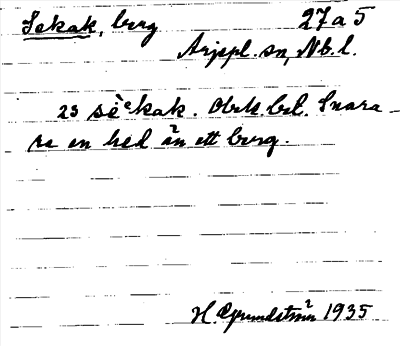 Sekak, berg 27a5
Arjepl. sn, Nb. l.
23 sè̀ᵉkak. Obek. bel. Snara-
re en hed än ett berg.
H. Grundström 1935